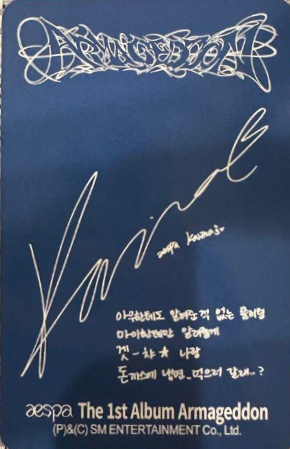 ARMAGEDDON
Karina
aespa Karina
아무한테도 알려준 적 없는 플러팅
마이한테만 알려줄게
겟-챠★ 나랑
돈까스에 냉면..먹으러 갈래..?
aespa The 1st Album Armageddon
(P)&(C) SM ENTERTAINMENT Co., Ltd.